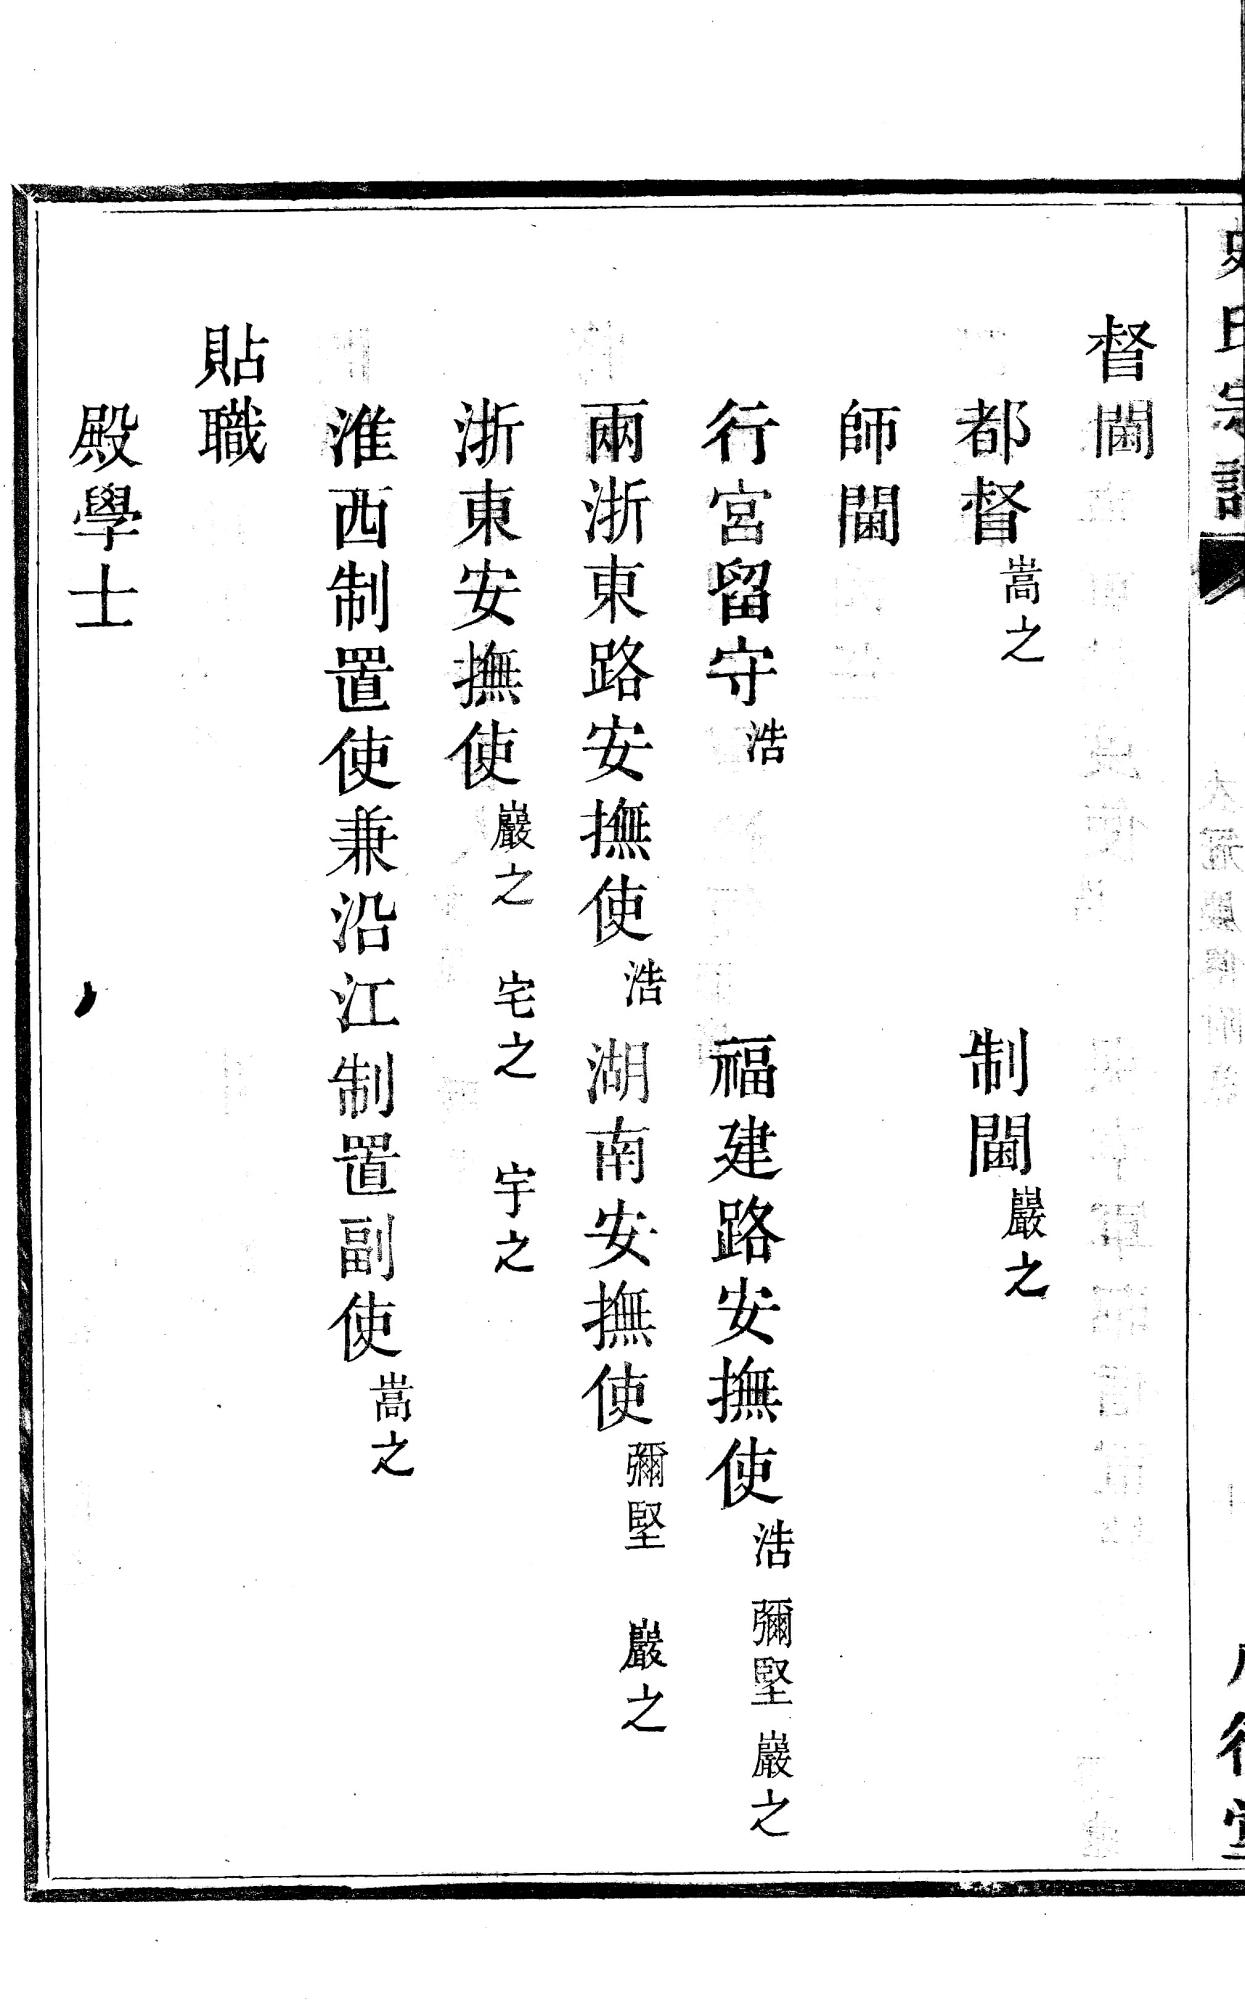 史氏宗譜 八行堂
督閫
都督嵩之 制閫巖之
師閫
行宮留守浩 福建路安撫使浩 彌堅 巖之
兩浙東路安撫使浩 湖南安撫使彌堅 巖之
浙東安撫使巖之 宅之 宇之
淮西制置使兼沿江制置副使嵩之
貼職
殿學士